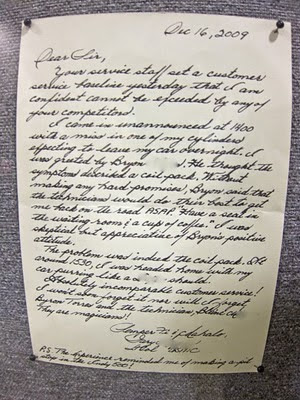 Dec 16, 2009
Dear Sir,
Your service staff set a customer
service baseline yesterday that I am
confident cannot be exceded by any of
your competitors.
I came in unannounced at 1400
with a miss in one of my cylinders
expecting to leave my car overnight. I
was greeted by Bryon . He thought the
symptoms described a coil pack. Without
making any hard promises, Bryon said that
the technicians would do their best to get
me back on the road ASAP. Have a seat in
the waiting room & a cup of coffee. I was
skeptical but appreciative of Bryon's positive
attitude.
The problem was indeed the coil pack. At
around 1530, I was headed home with my
car purring like a should.
Absolutely incomparable customer service!
I won't soon forget it nor will I forget
Byron and the technician,
They are magicians!
Semper Fi
Gary
P.S. The experience reminded me of making a pit
stop in the Indy 500!